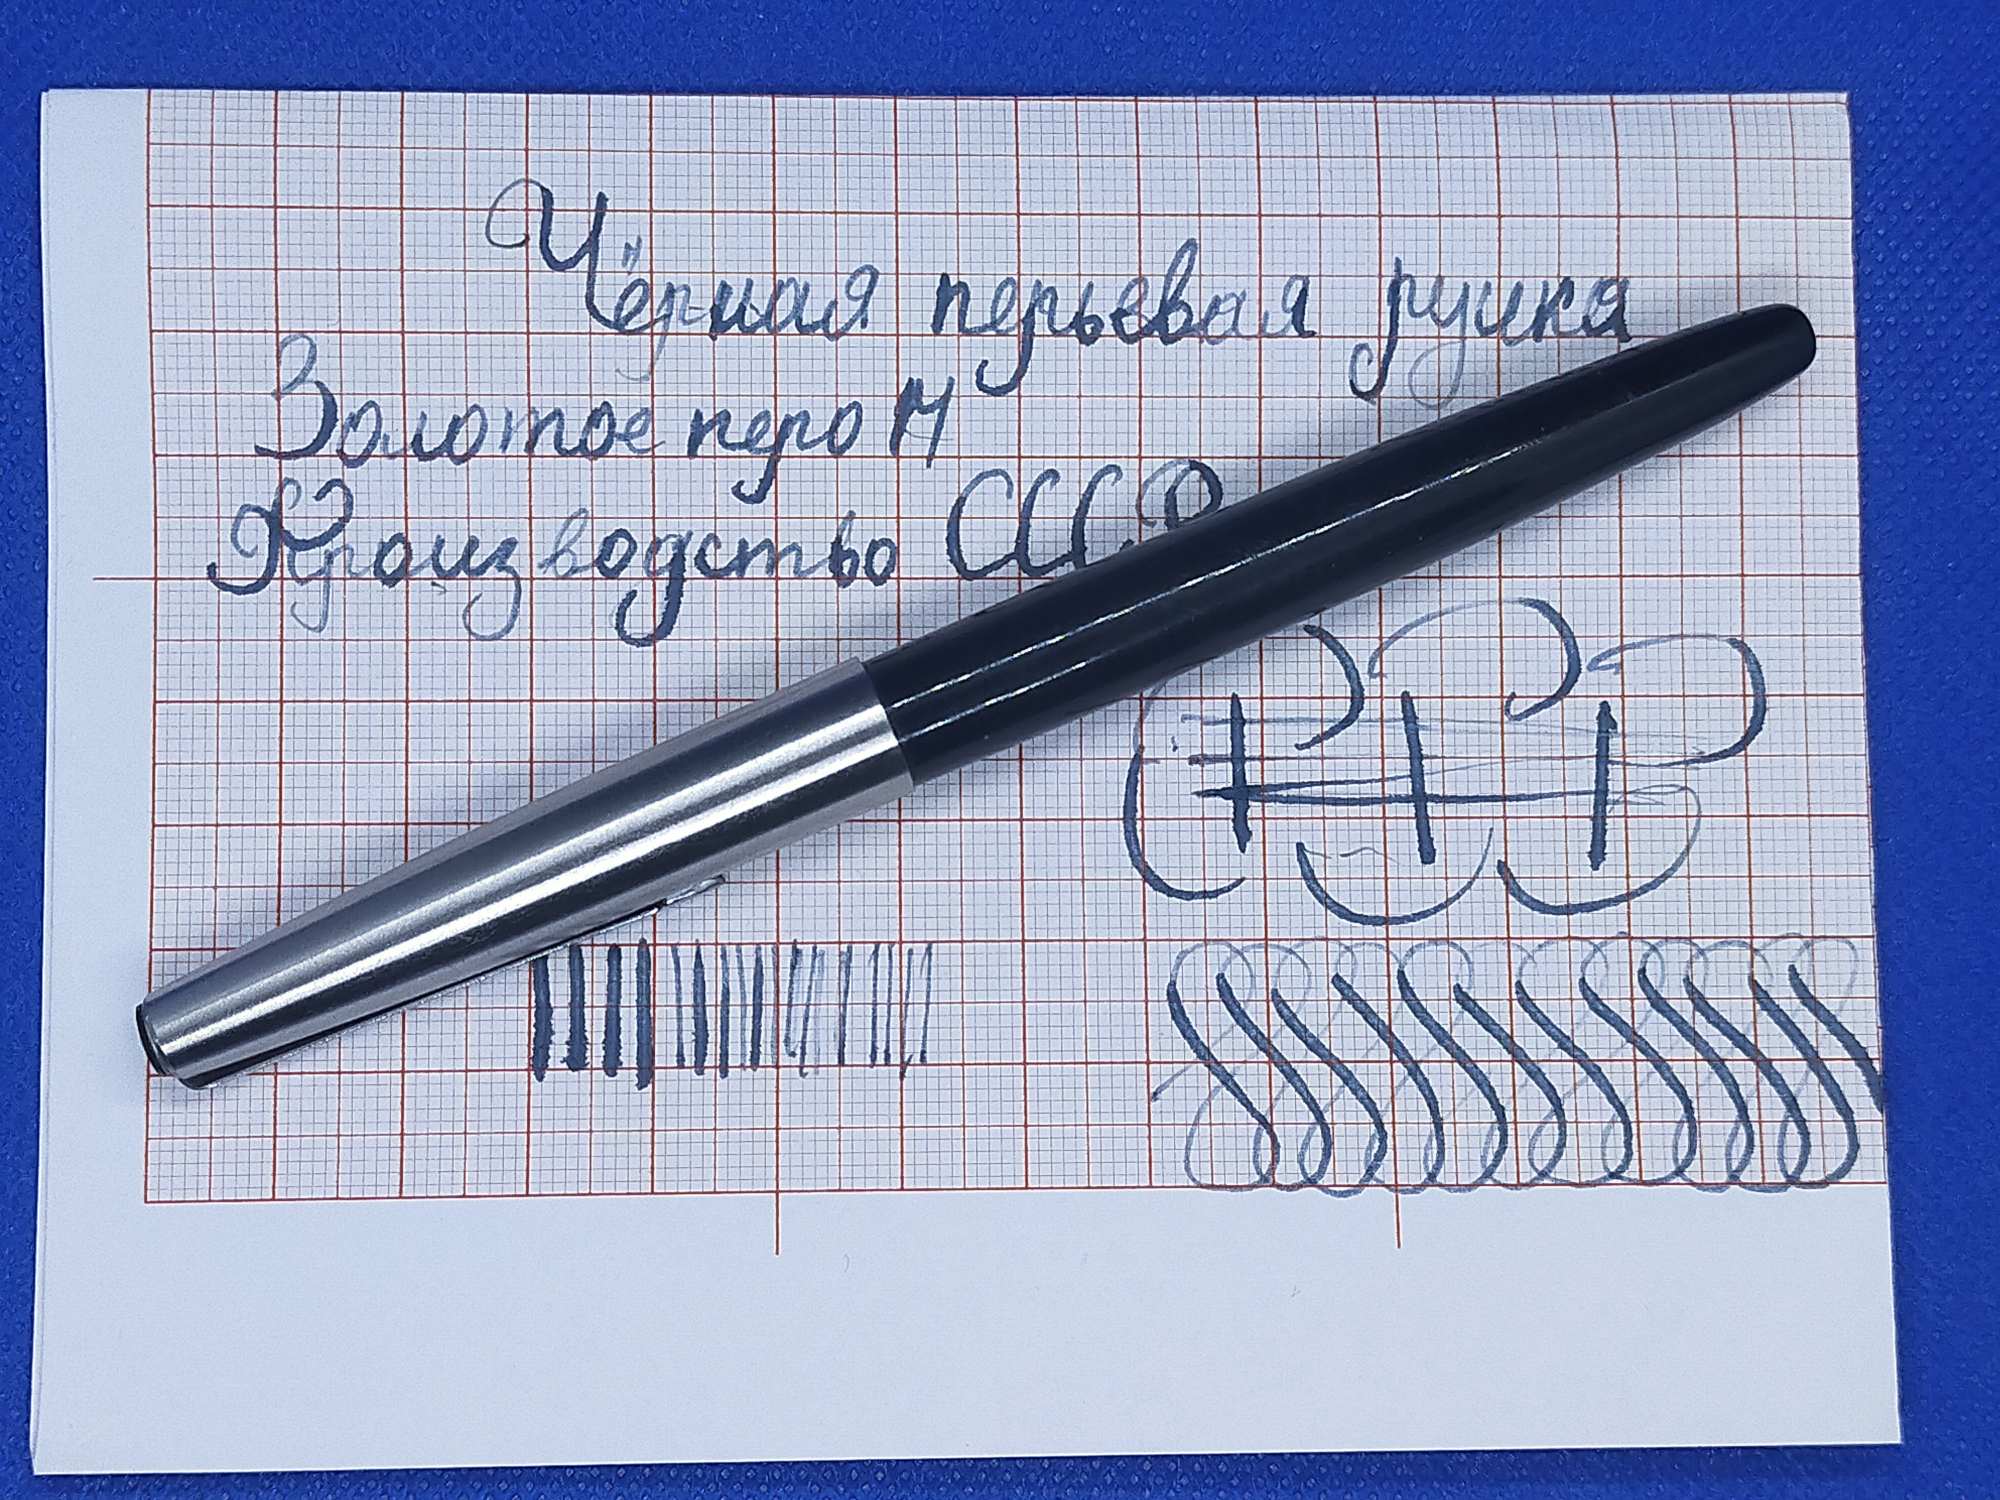 Чёрная перьевая ручка
Золотое перо М
Производство СССР